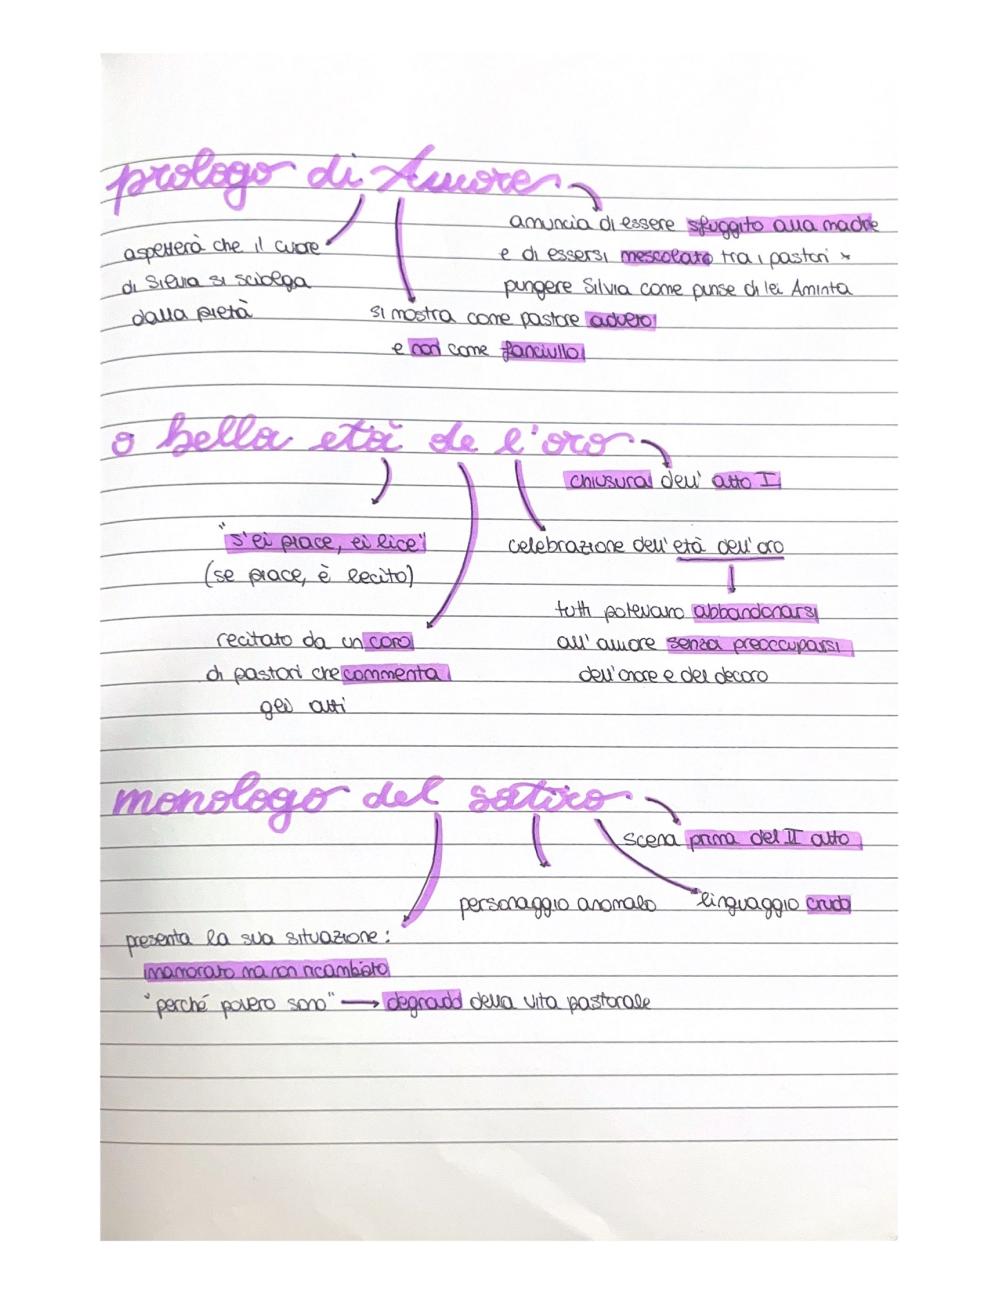 prologo di Amore
annuncia di essere sfuggito alla madre
e di essersi mescolato tra i pastori x
pungere Silvia come punse di lei Aminta
aspetterà che il cuore
di Silvia si sciolga
dalla pietà
si mostra come pastore advero
e non come fanciullo
o bella età de l'oro
chiusura dell' atto I
"s'ei piace, ei lice"
(se piace, è lecito)
celebrazione dell'età dell'oro
tutti potevano abbandonarsi
all'amore senza preoccuparsi
dell'onore e del decoro
recitato da un coro
di pastori che commenta
gli atti
monologo del satiro
scena prima del II atto
personaggio anomalo
linguaggio crudo
presenta la sua situazione:
innamorato ma non ricambiato
"perché povero sono" → degrado della vita pastorale